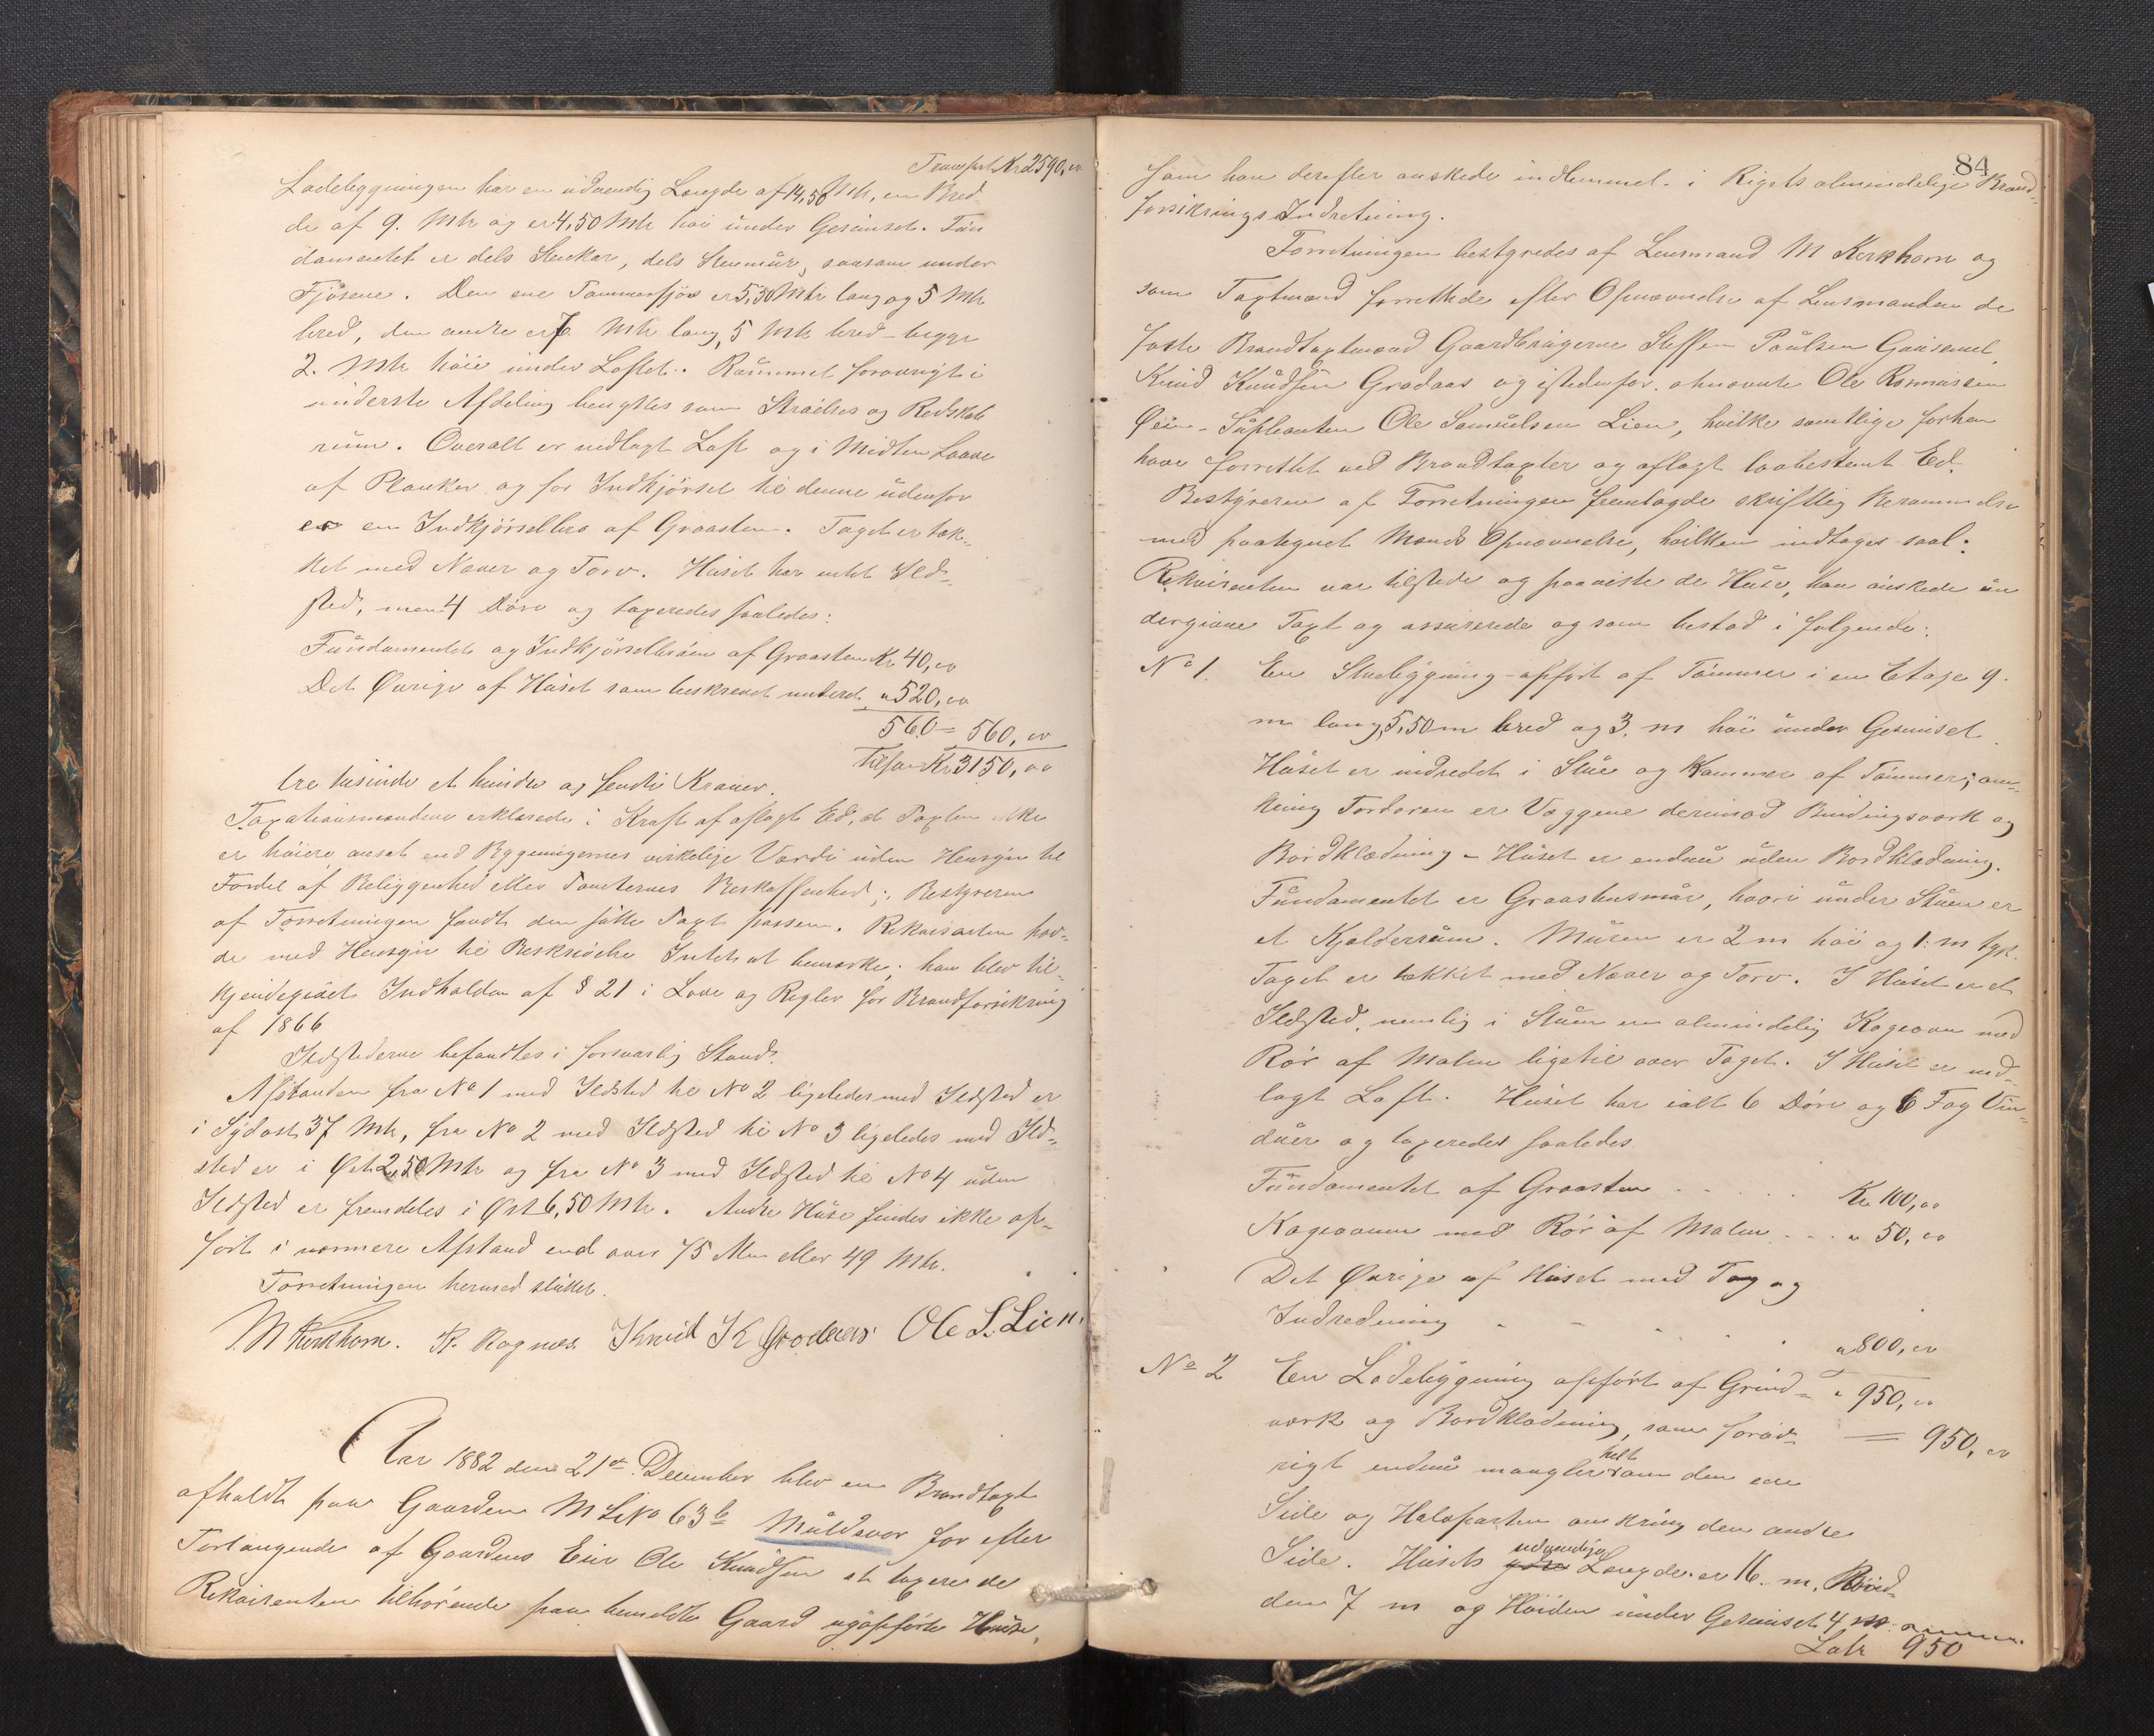 Transport Kr 2590,00
Ladebygningen har en udvendig Længde af 14,50 Mtr, en Bred-
de af 9. Mtr og er 4,50 Mtr høi under Gesimset. Fun
damentet er dels Stenkar, dels Stenmur, saasom under
Fjøsene. Den ene Tømmerfjøs er 5,50 Mtr lang og 5 Mtr
bred, den andre er 7 Mtr lang, 5 Mtr bred - begge
2. Mtr høie under Loftet. Rummet forøvrigt i
underste Afdeling benyttes som Straælses og Redskabs
rum. Overalt er nedlagt Loft og i Midten Laave
af Planker og for Indkjørsel til denne udenfor
er en Indkjørselbro af Graasten. Taget er tæk-
ket med Næver og Torv. Huset har intet Ild-
sted, men 4 Døre og taxeredes saaledes:
Fundamentet og Indkjørselbroen af Graasten Kr 40,00
Det Øvrige af Huset som beskrevet anderd. " 520,00
560 = 560,00
Tilsam Kr 3150,00
tre tusinde et hundre og femti Kroner.
Taxationsmændene erklærede i Kraft af aflagt Ed, at Taxten ikke
er høiere ansat end Bygningernes virkelige Værdi uden Hensyn til
Fordel af Beliggenhed eller Tomternes Beskaffenhed; Bestyreren
af Forretningen fandt den satte Taxt passen. Rekvirenten hav-
de med Hensyn til Beskrivelse Intet at bemærke; han blev til-
kjendegivet Indholden af § 21 i Love og Regler for Brandforsikring
af 1866
Ildstederne befandtes i forsvarlig Stand.
Afstanden fra No 1 med Ildsted til No 2 ligeledes med Ildsted er
i Sydost 37 Mtr, fra No 2 med Ildsted til No 3 ligeledes med Ild-
sted er i Øst 2,50 Mtr og fra No 3 med Ildsted til No 4 uden
Ildsted er fremdeles i Øst 6,50 Mtr. Andre Huse findes ikke op-
ført i nærmere Afstand end over 75 Alen eller 49 Mtr.
Forretningen hermed sluttet.
M Kirkhorn. P. Ragnæs. Knud K Grodaas Ole S. Lien,
Aar 1882 den 21de December blev en Brandtaxt
afholdt paa Gaarden M L No 63b Muldsvor for efter
Forlangende af Gaardens Eier Ole Knudsen at taxere de
Rekvirenten tilhørende paa bemeldte Gaard nyopførte Huse,
84
som han derefter ønskede indlemmet i Rigets almindelige Brand-
forsikrings Indretning.
Forretningen bestyredes af Lensmand M Kirkhorn og
som Taxtmænd forrettede efter Opnævnelse af Lensmanden de
faste Brandtaxtmænd Gaardbrugerne Steffen Paulsen Gausemel,
Knud Knudsen Grodaas og istedenfor opnævnte Ole Rasmussen
Øien - Supleanten Ole Samuelsen Lien, hvilke samtlige forhen
have forrettet ved Brandtaxter og aflagt lovbestemt Ed.
Bestyreren af Forretningen fremlagde skriftlig Berammelse
med paategnet Mænds Opnævnelse, hvilken indtages saal:
Rekvirenten var tilstede og paaviste de Huse, han ønskede un
dergivne Taxt og assurerede og som bestod i følgende:
No 1. En Stuebygning - opført af Tømmer i en Etage 9.
m lang, 5,50 m bred og 3. m høi under Gesimset
Huset er indredet i Stue og Kammer af Tømmer; om-
kring Fordøren er Væggene derimod Bindingsværk og
Bordklædning - Huset er endnu uden Bordklædning.
Fundamentet er Graastensmur, hvori under Stuen er
et Kjælderrum. Muren er 2 m høi og 1. m tyk.
Taget er tækket med Næver og Torv. I Huset er et
Ildsted, nemlig i Stuen en almindelig Kogeovn med
Rør af Malm ligetil over Taget. I Huset er ned-
lagt Loft. Huset har ialt 6 Døre og 6 Fag Vin-
duer og taxeredes saaledes.
Fundamentet af Graasten . . . . . Kr 100,00
Kogeovnen med Rør af Malm . . . " 50,00
Det Øvrige af Huset med Tag og
Indredning - - - - - " 800,00
" 950,00
No 2 En Ladebygning opført af Grind-
værk og Bordklædning, som forøv- = 950,00
rigt endnu mangler helt om den ene
Side og Halvparten omkring den andre
Side. Husets udvendige Længde er 16. m, Bred-
den 7 m og Høiden under Gesimset 4 m
Latr 950